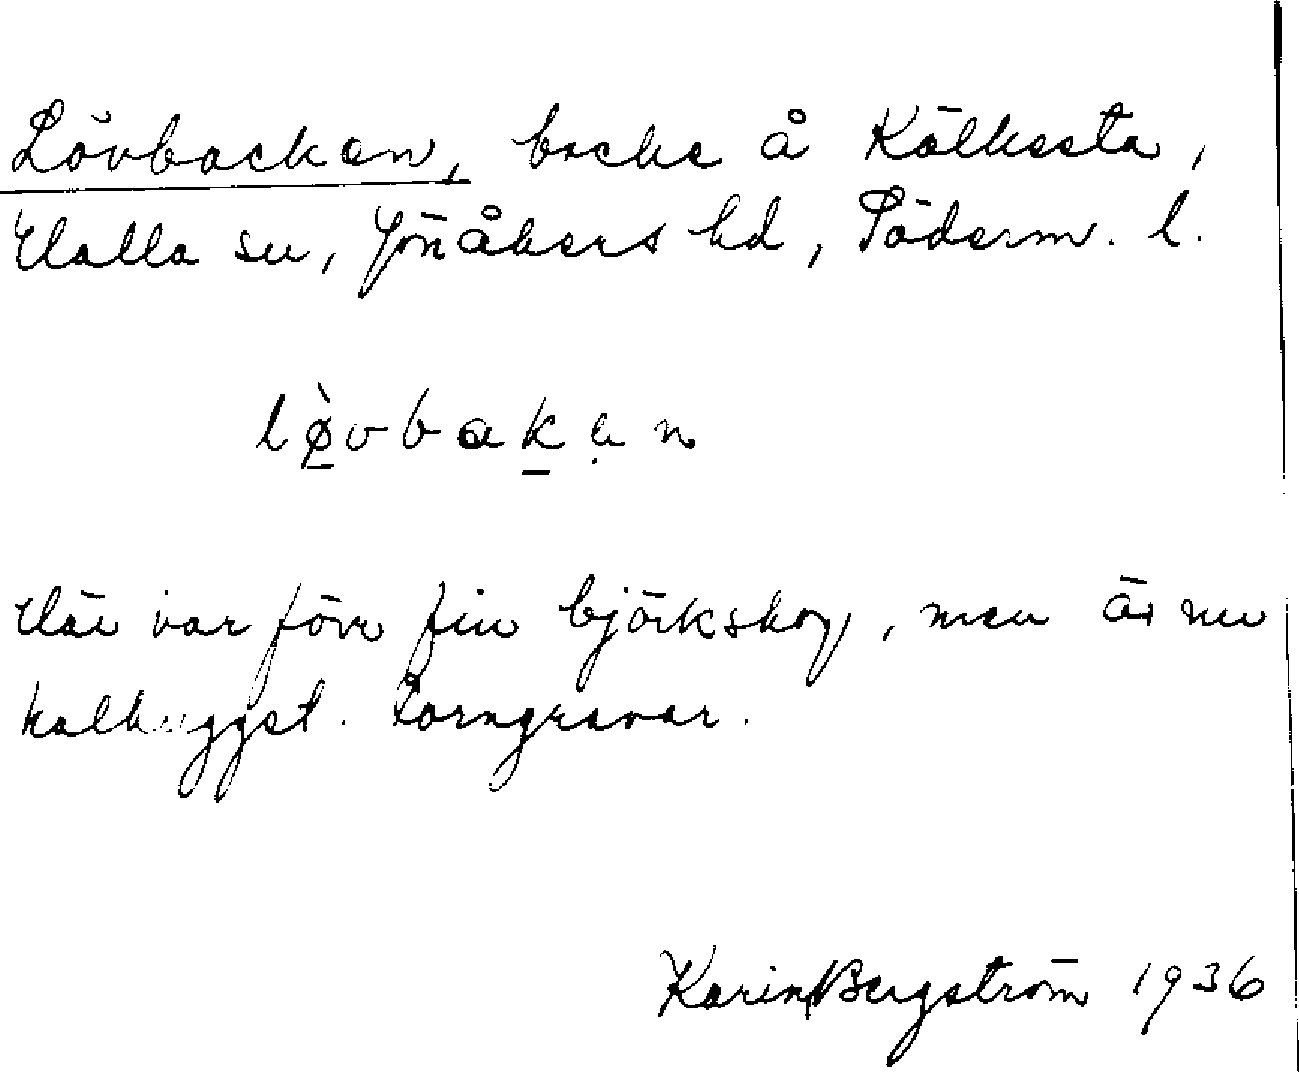 Lövbacken, backe å Kälkesta,
Halla sn, Jönåkers hd, Söderm. l.
lø̀vbakan
Här var förr fin björkskog, men är nu
kalhuggst. Korngravar.
Karin Bergström 1936